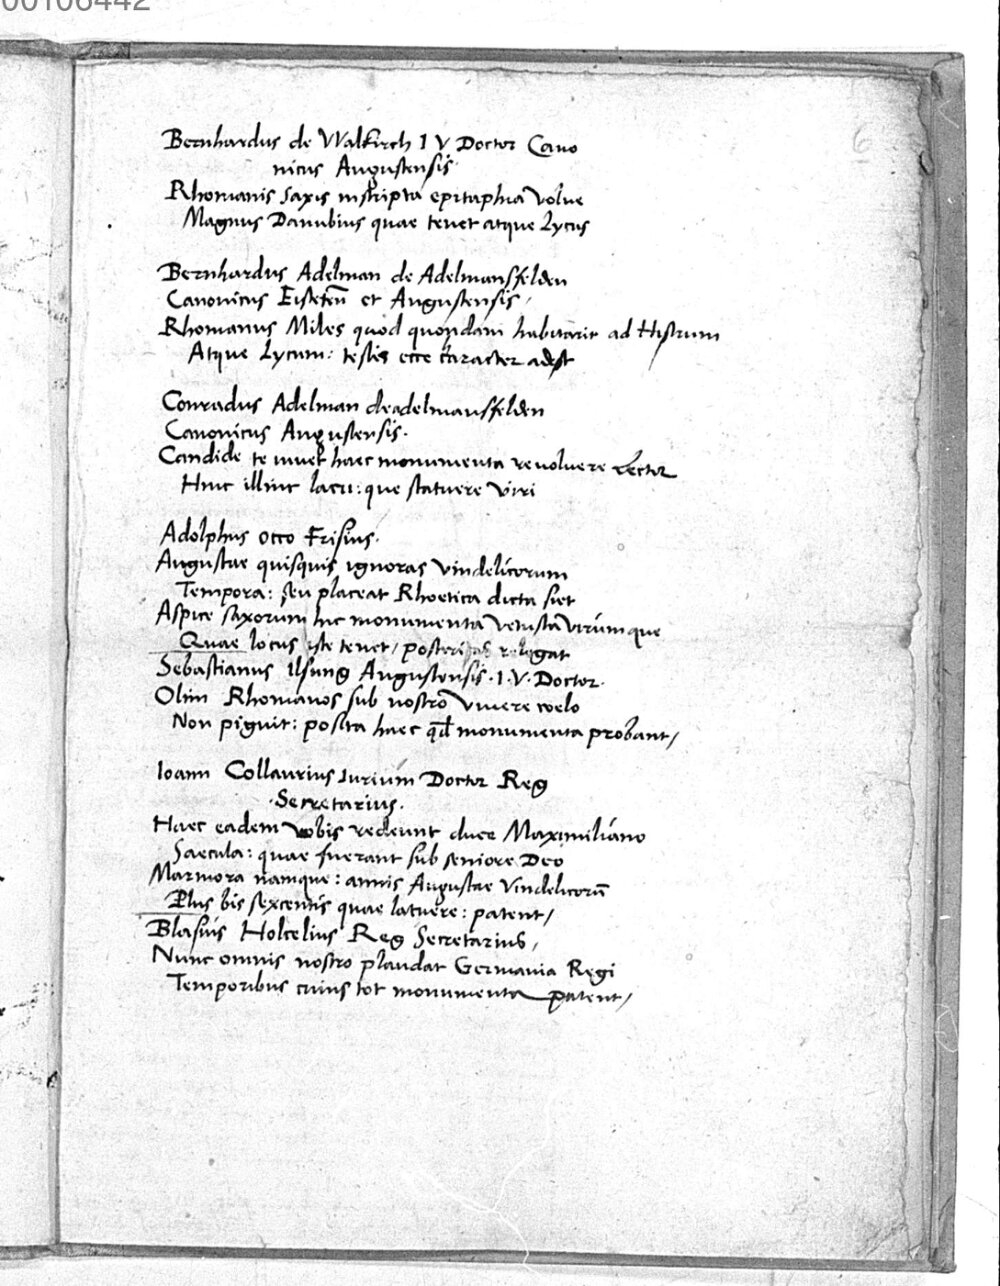 00106442
6
Bernhardus de Walkirch I V Doctor Cano
nicus Augustensis
Rhomanis saxis inscripta epitaphia volve
Magnus Danubius quae tenet atque Lycus
Bernhardus Adelman de Adelmansfelden
Canonicus Eisteteñ et Augustensis /
Rhomanus Miles quod quondam habitarit ad Histrum
Atque Lycum: testis ecce caracter adest
Conradus Adelman deadelmansfelden
Canonicus Augustensis.
Candide te iuvet haec monumenta revolvere lector
Hinc illinc lacu: que statuere viri
Adolphus Otto Frisius.
Augustae quisquis ignoras Vindelicorum
Tempora: seu placeat Rhoetica dicta siet
Aspice saxorum hic monumenta vetusta virúmque
Quae locus iste tenet / posteritas relegat
Sebastianus Ilsung Augustensis. I. V. Doctor.
Olim Rhomanos sub nostro vivere coelo
Non piguit: posita haec qd monumenta probant /
Ioann Collaurius Iurium Doctor Reg
Secretarius.
Haec eadem vobis redeunt duce Maximiliano
Saecula: quae fuerant sub seniore Deo
Marmora namque: annis Augustae Vindelicorū
Plus bis sexcentis quae latuere: patent /
Blasius Holcelius Reg Secretarius,
Nunc omnis nostro plaudat Germania Regi
Temporibus cuius tot monumenta patent /